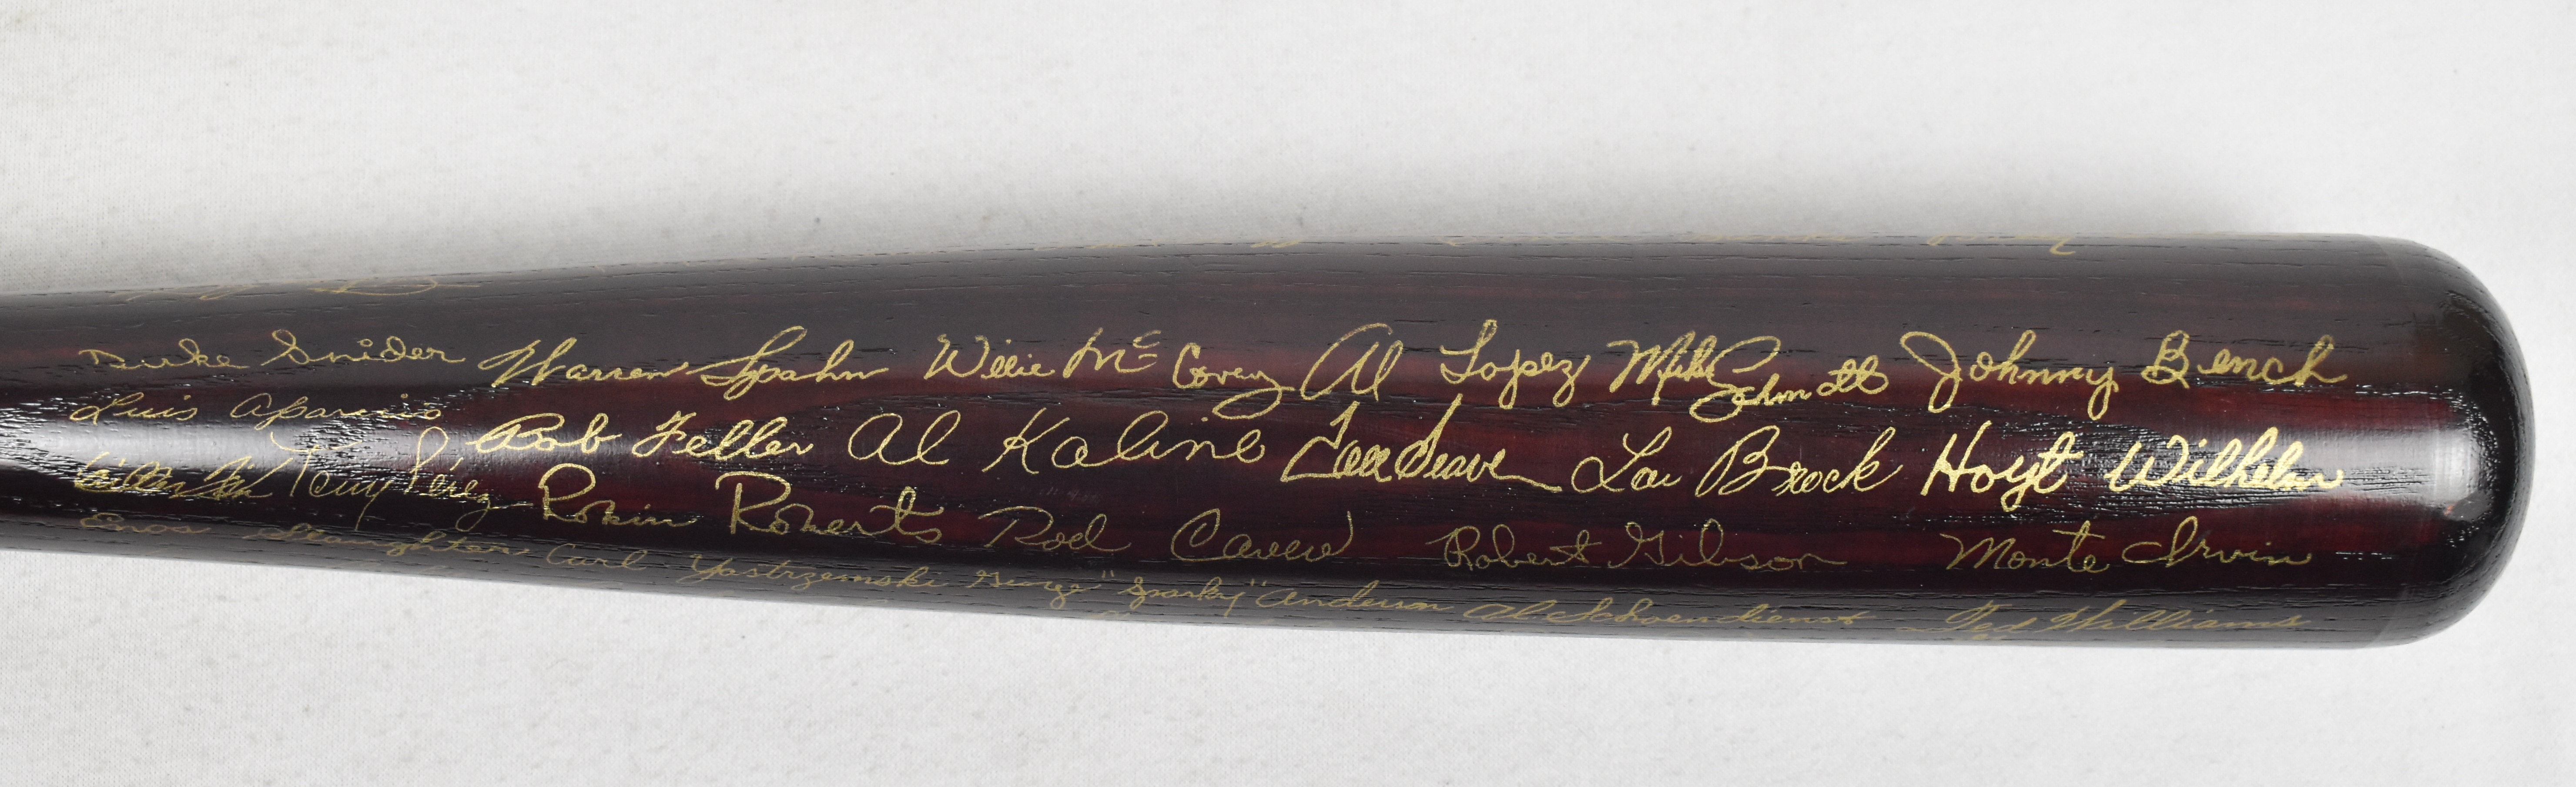 Duke Snider Warren Spahn Willie McCovey Al Lopez Mike Schmidt Johnny Bench
Luis Aparicio Bob Feller Al Kaline Tom Seaver Lou Brock Hoyt Wilhelm
Tony Pérez Robin Roberts Rod Carew Robert Gibson Monte Irvin
Enos Slaughter Carl Yastrzemski George "Sparky" Anderson Al Schoendienst Ted Williams